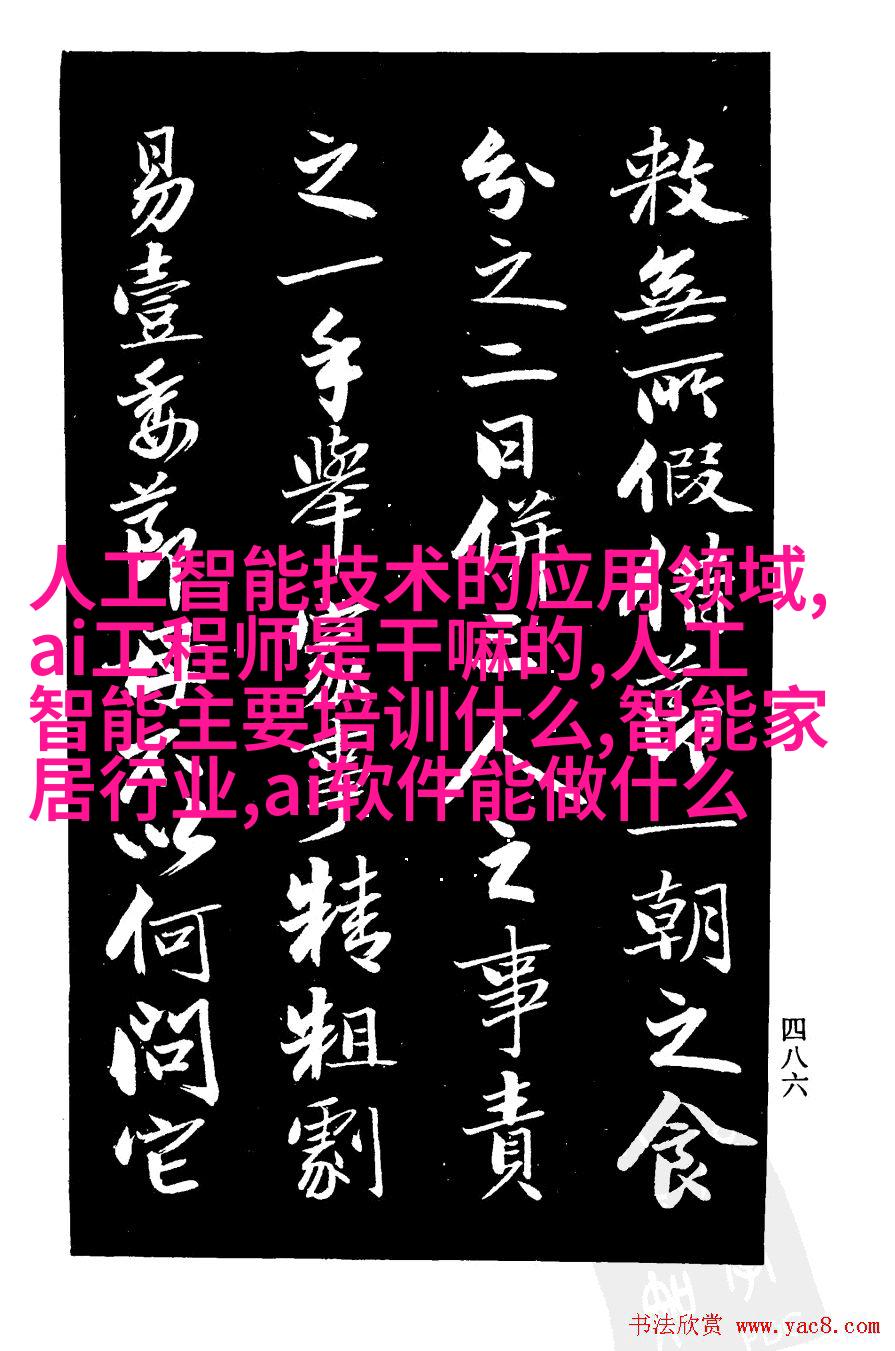 敕無所假借一朝之食
分之二日併人之事責
之一手舉事精粗劇
易壹委以何問它
人工智能技术的应用领域,
ai工程师是干嘛的,人工
智能主要培训什么,智能家
居行业,ai软件能做什么
四八六
书法欣赏 www.yac8.com